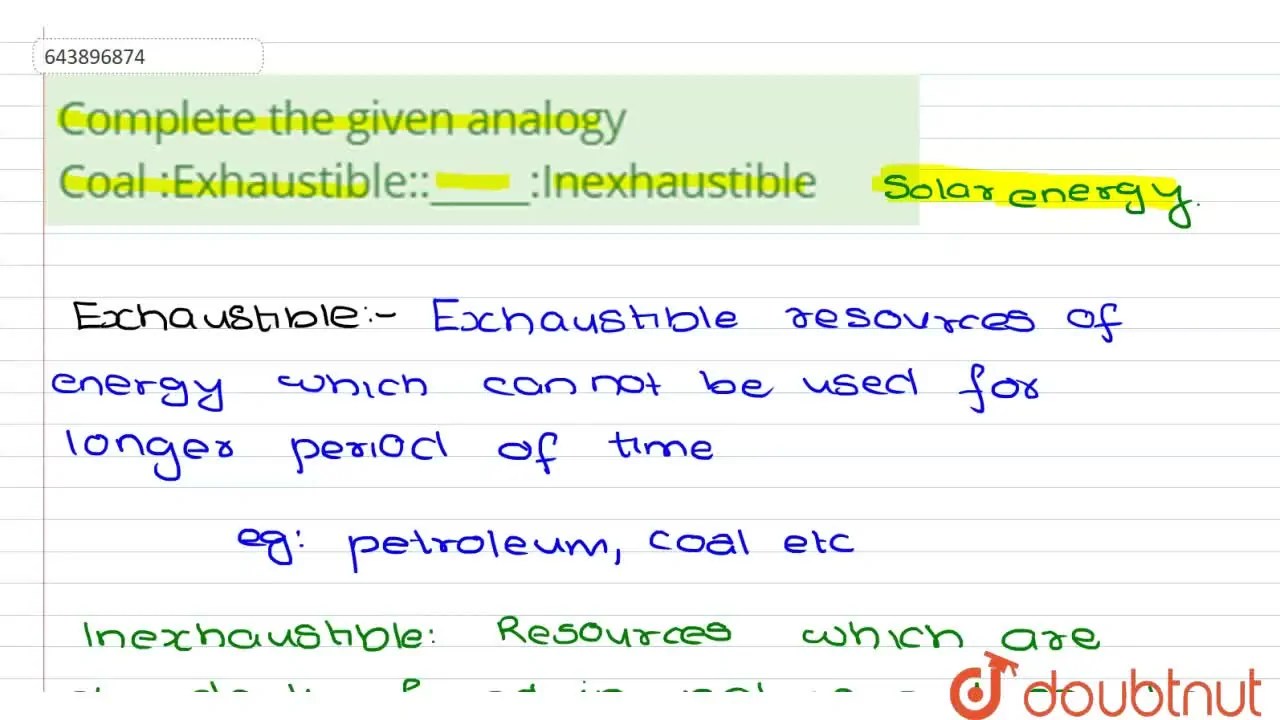 643896874
Complete the given analogy
Coal :Exhaustible::_____:Inexhaustible Solar energy.
Exhaustible:- Exhaustible resources of
energy which can not be used for
longer period of time
eg: petroleum, coal etc
Inexhaustible: Resources which are
doubtnut